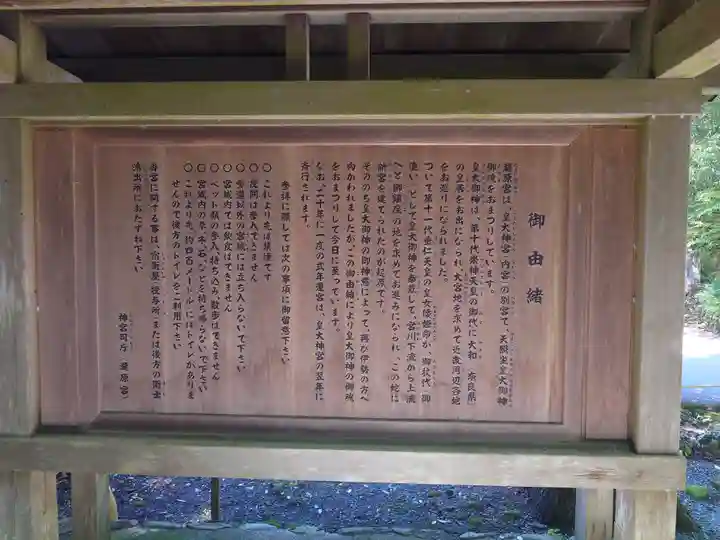 御由緒
瀧原宮は、皇大神宮(内宮)の別宮で、天照坐皇大御神
御魂をおまつりしています。
皇大御神は、第十代崇神天皇の御代に大和(奈良県)
の皇居をお出になられ、大宮地を求めて近畿周辺各地
をお巡りになられました。
ついで第十一代垂仁天皇の皇女倭姫命が、御杖代(御
遣い)として皇大御神を奉戴して、宮川下流から上流
へと御鎮座の地を求めてお進みになられ、この地に
新宮を建てられたのが起原です。
そののち皇大御神の御神意によって、再び伊勢の方へ
向かわれましたが、この御由緒により皇大御神の御魂
をおまつりして今日に至っています。
なお、二十年に一度の式年遷宮は、皇大神宮の翌年に
斉行されます。
参拝に際しては次の事項に御留意下さい
○これより先は禁煙です
○夜間は参入できません
○参道以外の宮域には立ち入らないで下さい
○宮域内では飲食はできません
○ペット類の参入、持ち込み、散歩はできません
○宮域内の草、木、石、などを持ち帰らないで下さい
○これより先、約四百メートルにはトイレがありま
せんので後方のトイレをご利用下さい
当宮に関する事は、宿衛屋(授与所)または後方の衛士
派出所におたずね下さい
神宮司庁 瀧原宮